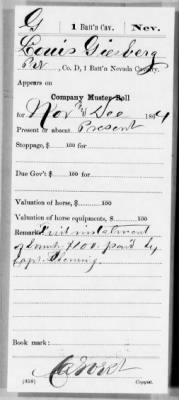 G | 1 Batt'n Cav. | Nev.
Louis Giesberg
Pvt, Co. D, 1 Batt'n Nevada Cavalry.
Appears on
Company Muster Roll
for Nov & Dec, 1864
Present or absent Present
Stoppage, $ 100 for
Due Gov't $ 100 for
Valuation of horse, $ 100
Valuation of horse equipments, $ 100
Remarks: instalment
of $100 paid by
Capt.
Book mark:
(858) Copyist.